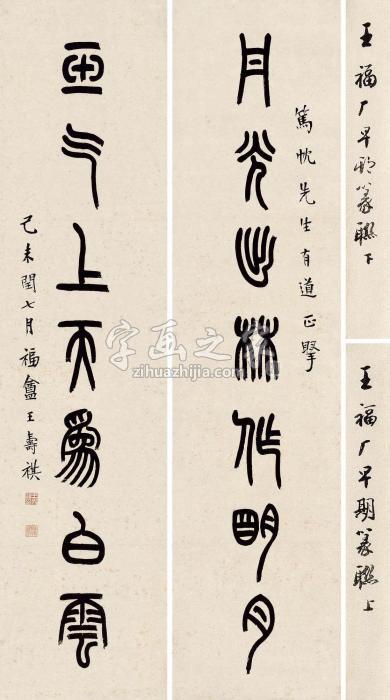 王福厂早期篆聯上
王福厂早期篆聯下
篤忱先生有道正
丹光出林作明月
玉气上天為白雲
己未閏七月福盦王壽祺
字画之家
zihuazhijia.com